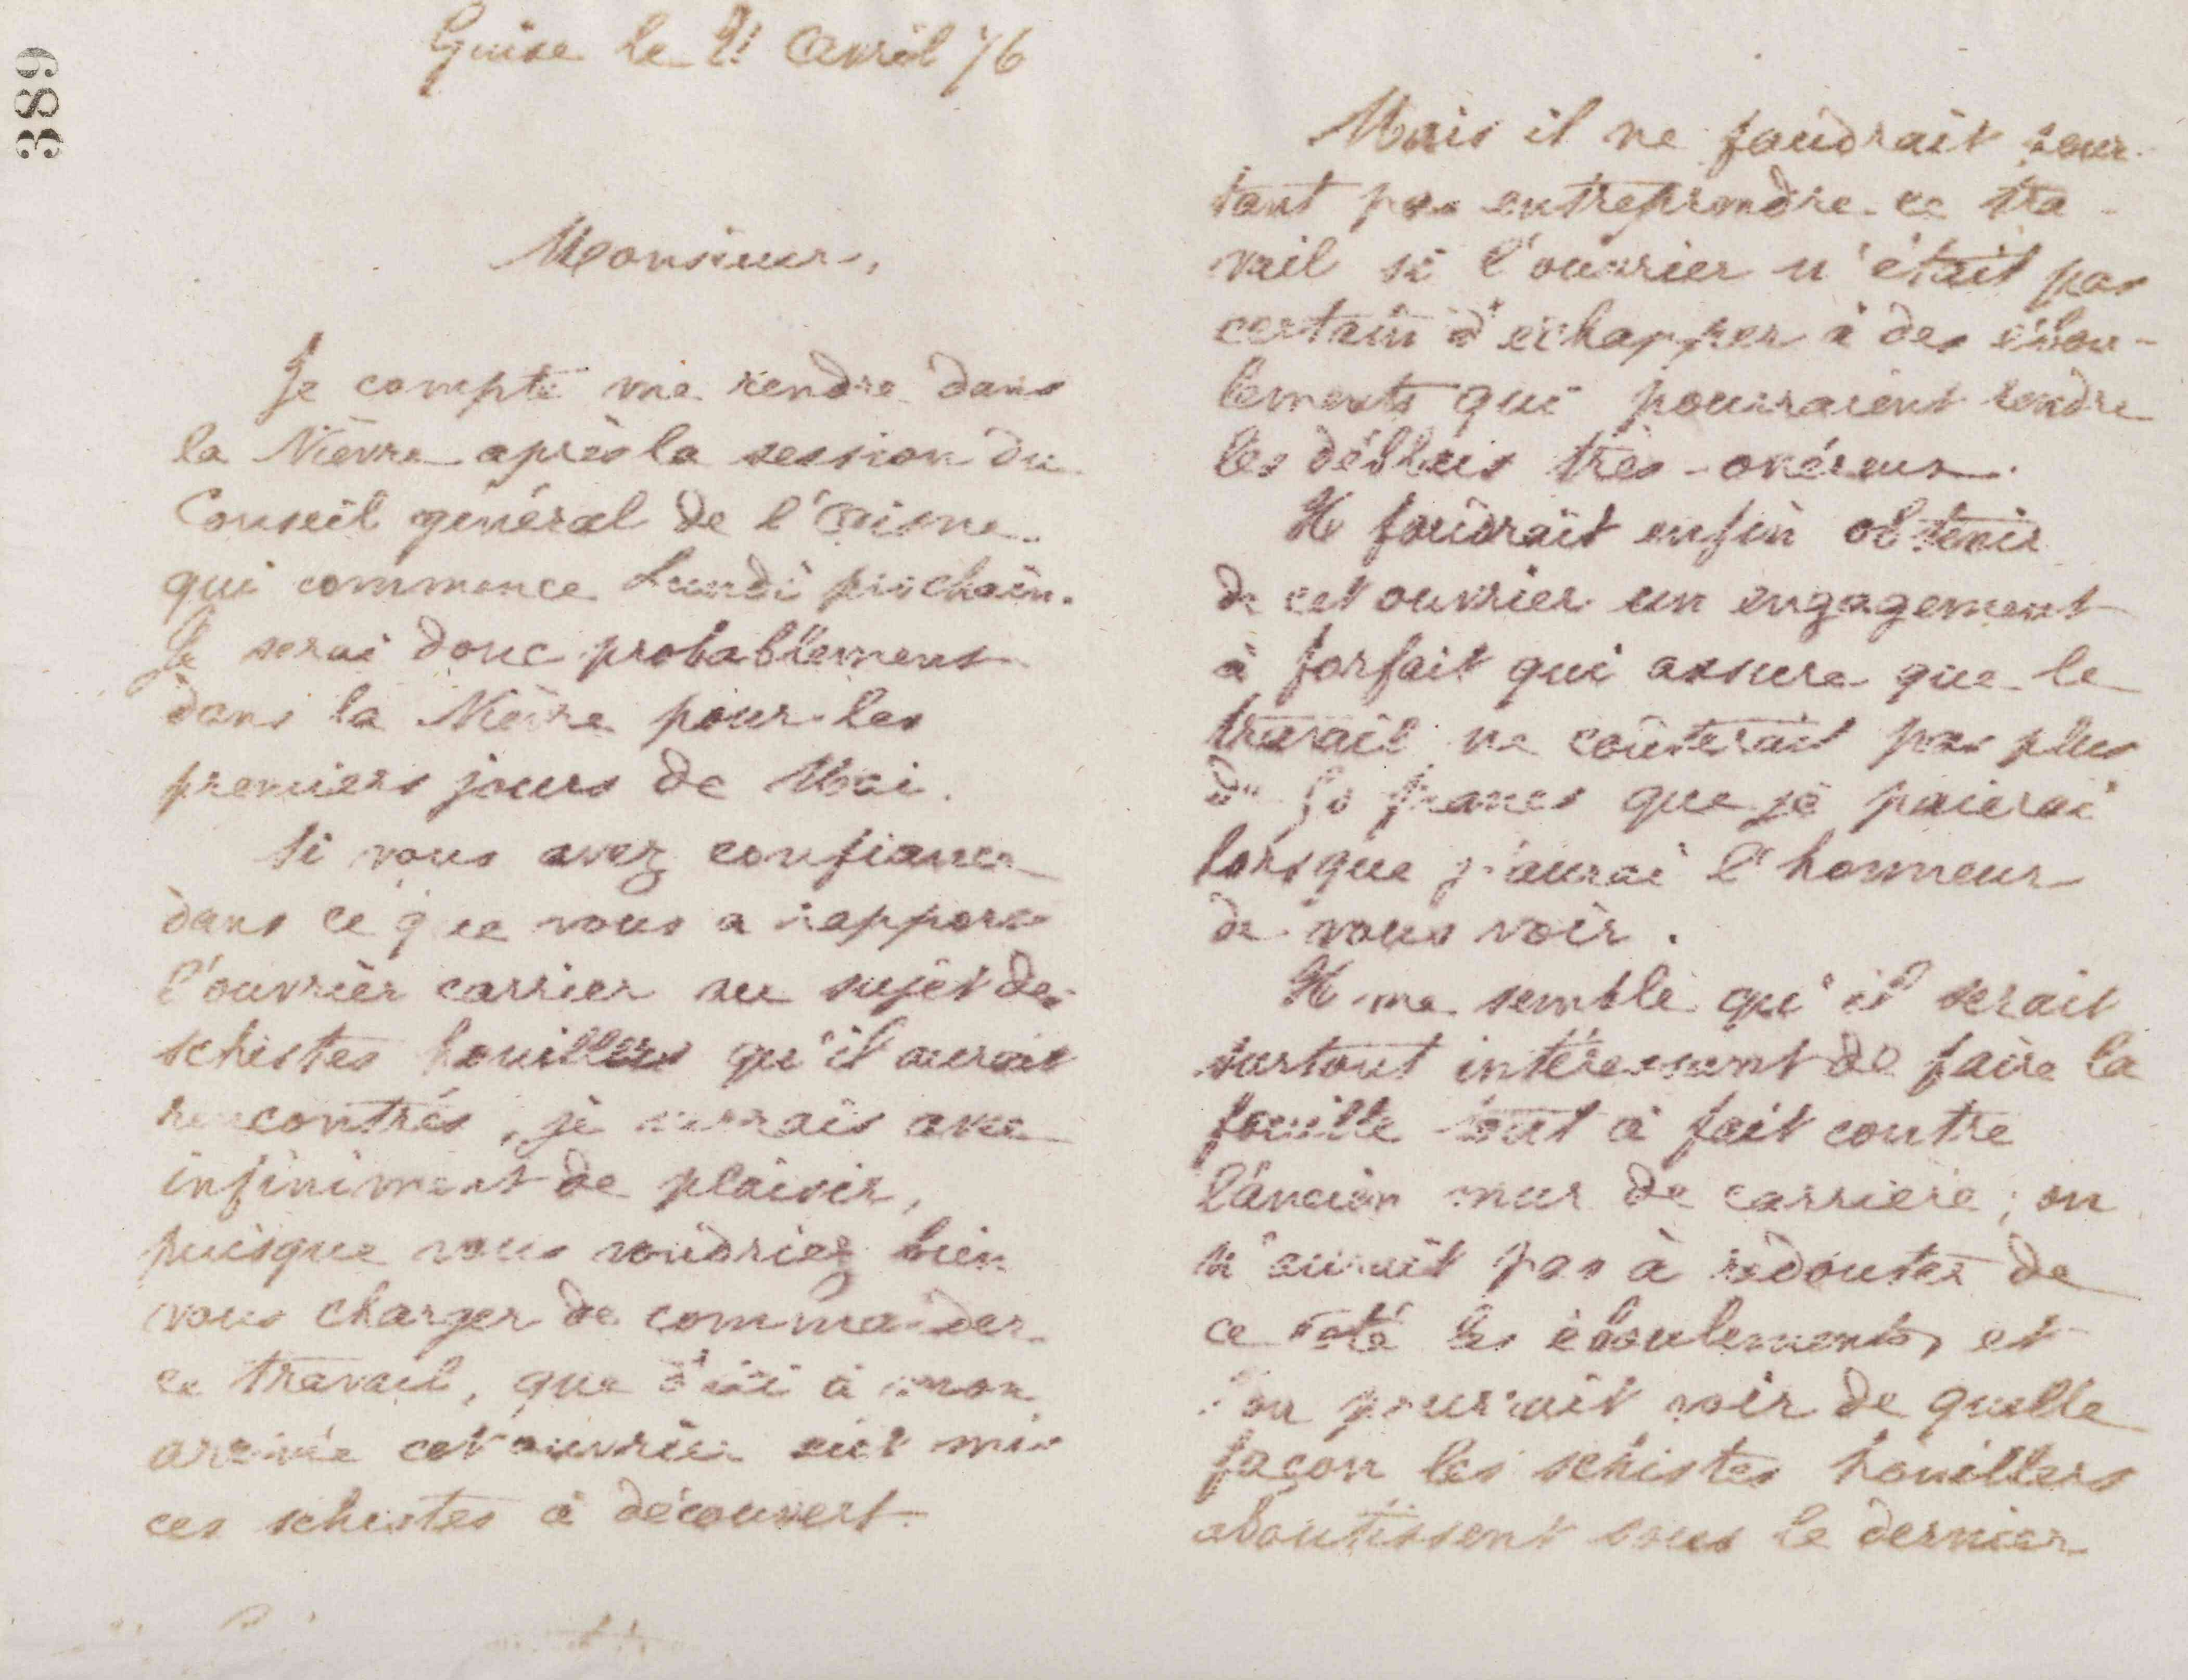 389
Guise le 21 Avril 76
Monsieur,
Je compte me rendre dans
la Nièvre après la session du
Conseil général de l'Aisne
qui commence Lundi prochain.
Je serai donc probablement
dans la Nièvre pour les
premiers jours de Mai.
Si vous avez confiance
dans ce que vous a rapporté
l'ouvrier carrier au sujet des
schistes houillers qu'il aurait
rencontrés, je verrais avec
infiniment de plaisir,
puisque vous voudriez bien
vous charger de commander
ce travail, que d'ici à mon
arrivée cet ouvrier eût mis
ces schistes à découvert.
Mais il ne faudrait pour-
tant pas entreprendre ce tra-
vail si l'ouvrier n'était pas
certain d'échapper à des ébou-
lements qui pourraient rendre
les déblais très-onéreux.
Il faudrait enfin obtenir
de cet ouvrier un engagement
à forfait qui assure que le
travail ne coûterait pas plus
de 50 francs que je paierai
lorsque j'aurai l'honneur
de vous voir.
Il me semble qu'il serait
surtout intéressant de faire la
fouille tout à fait contre
l'ancien mur de carrière; on
n'aurait pas à redouter de
ce côté les éboulements, et
l'on pourrait voir de quelle
façon les schistes houillers
aboutissent sous le dernier